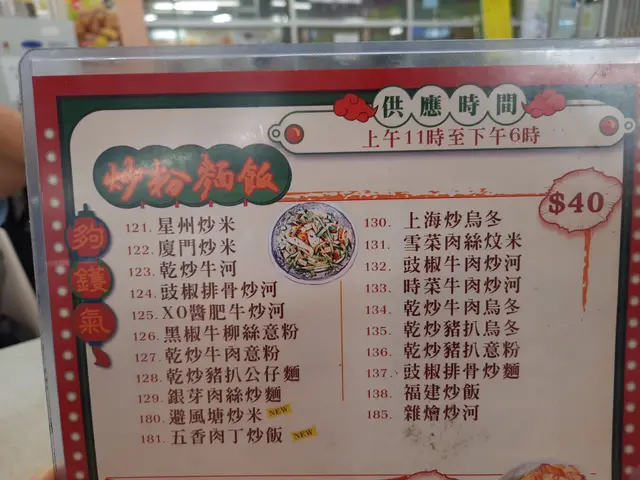 供應時間
上午11時至下午6時
炒粉麵飯
$40
夠鑊氣
121. 星州炒米
122. 廈門炒米
123. 乾炒牛河
124. 豉椒排骨炒河
125. XO醬肥牛炒河
126. 黑椒牛柳絲意粉
127. 乾炒牛肉意粉
128. 乾炒豬扒公仔麵
129. 銀芽肉絲炒麵
180. 避風塘炒米 NEW
181. 五香肉丁炒飯 NEW
130. 上海炒烏冬
131. 雪菜肉絲炆米
132. 豉椒牛肉炒河
133. 時菜牛肉炒河
134. 乾炒牛肉烏冬
135. 乾炒豬扒烏冬
136. 乾炒豬扒意粉
137. 豉椒排骨炒麵
138. 福建炒飯
185. 雜燴炒河